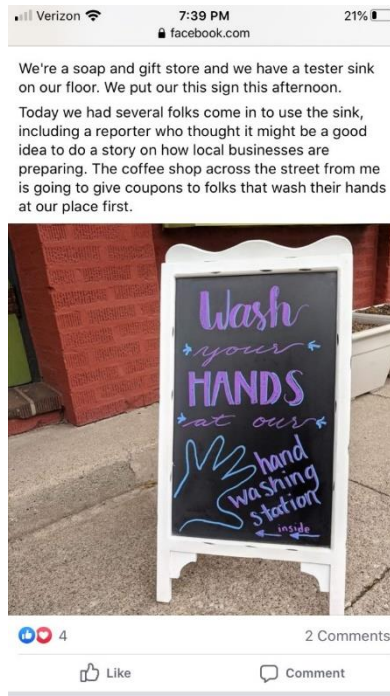 Verizon 7:39 PM 21%
facebook.com
We're a soap and gift store and we have a tester sink
on our floor. We put our this sign this afternoon.
Today we had several folks come in to use the sink,
including a reporter who thought it might be a good
idea to do a story on how local businesses are
preparing. The coffee shop across the street from me
is going to give coupons to folks that wash their hands
at our place first.
Wash
your
HANDS
at our
hand
washing
station
inside
4 2 Comments
Like Comment